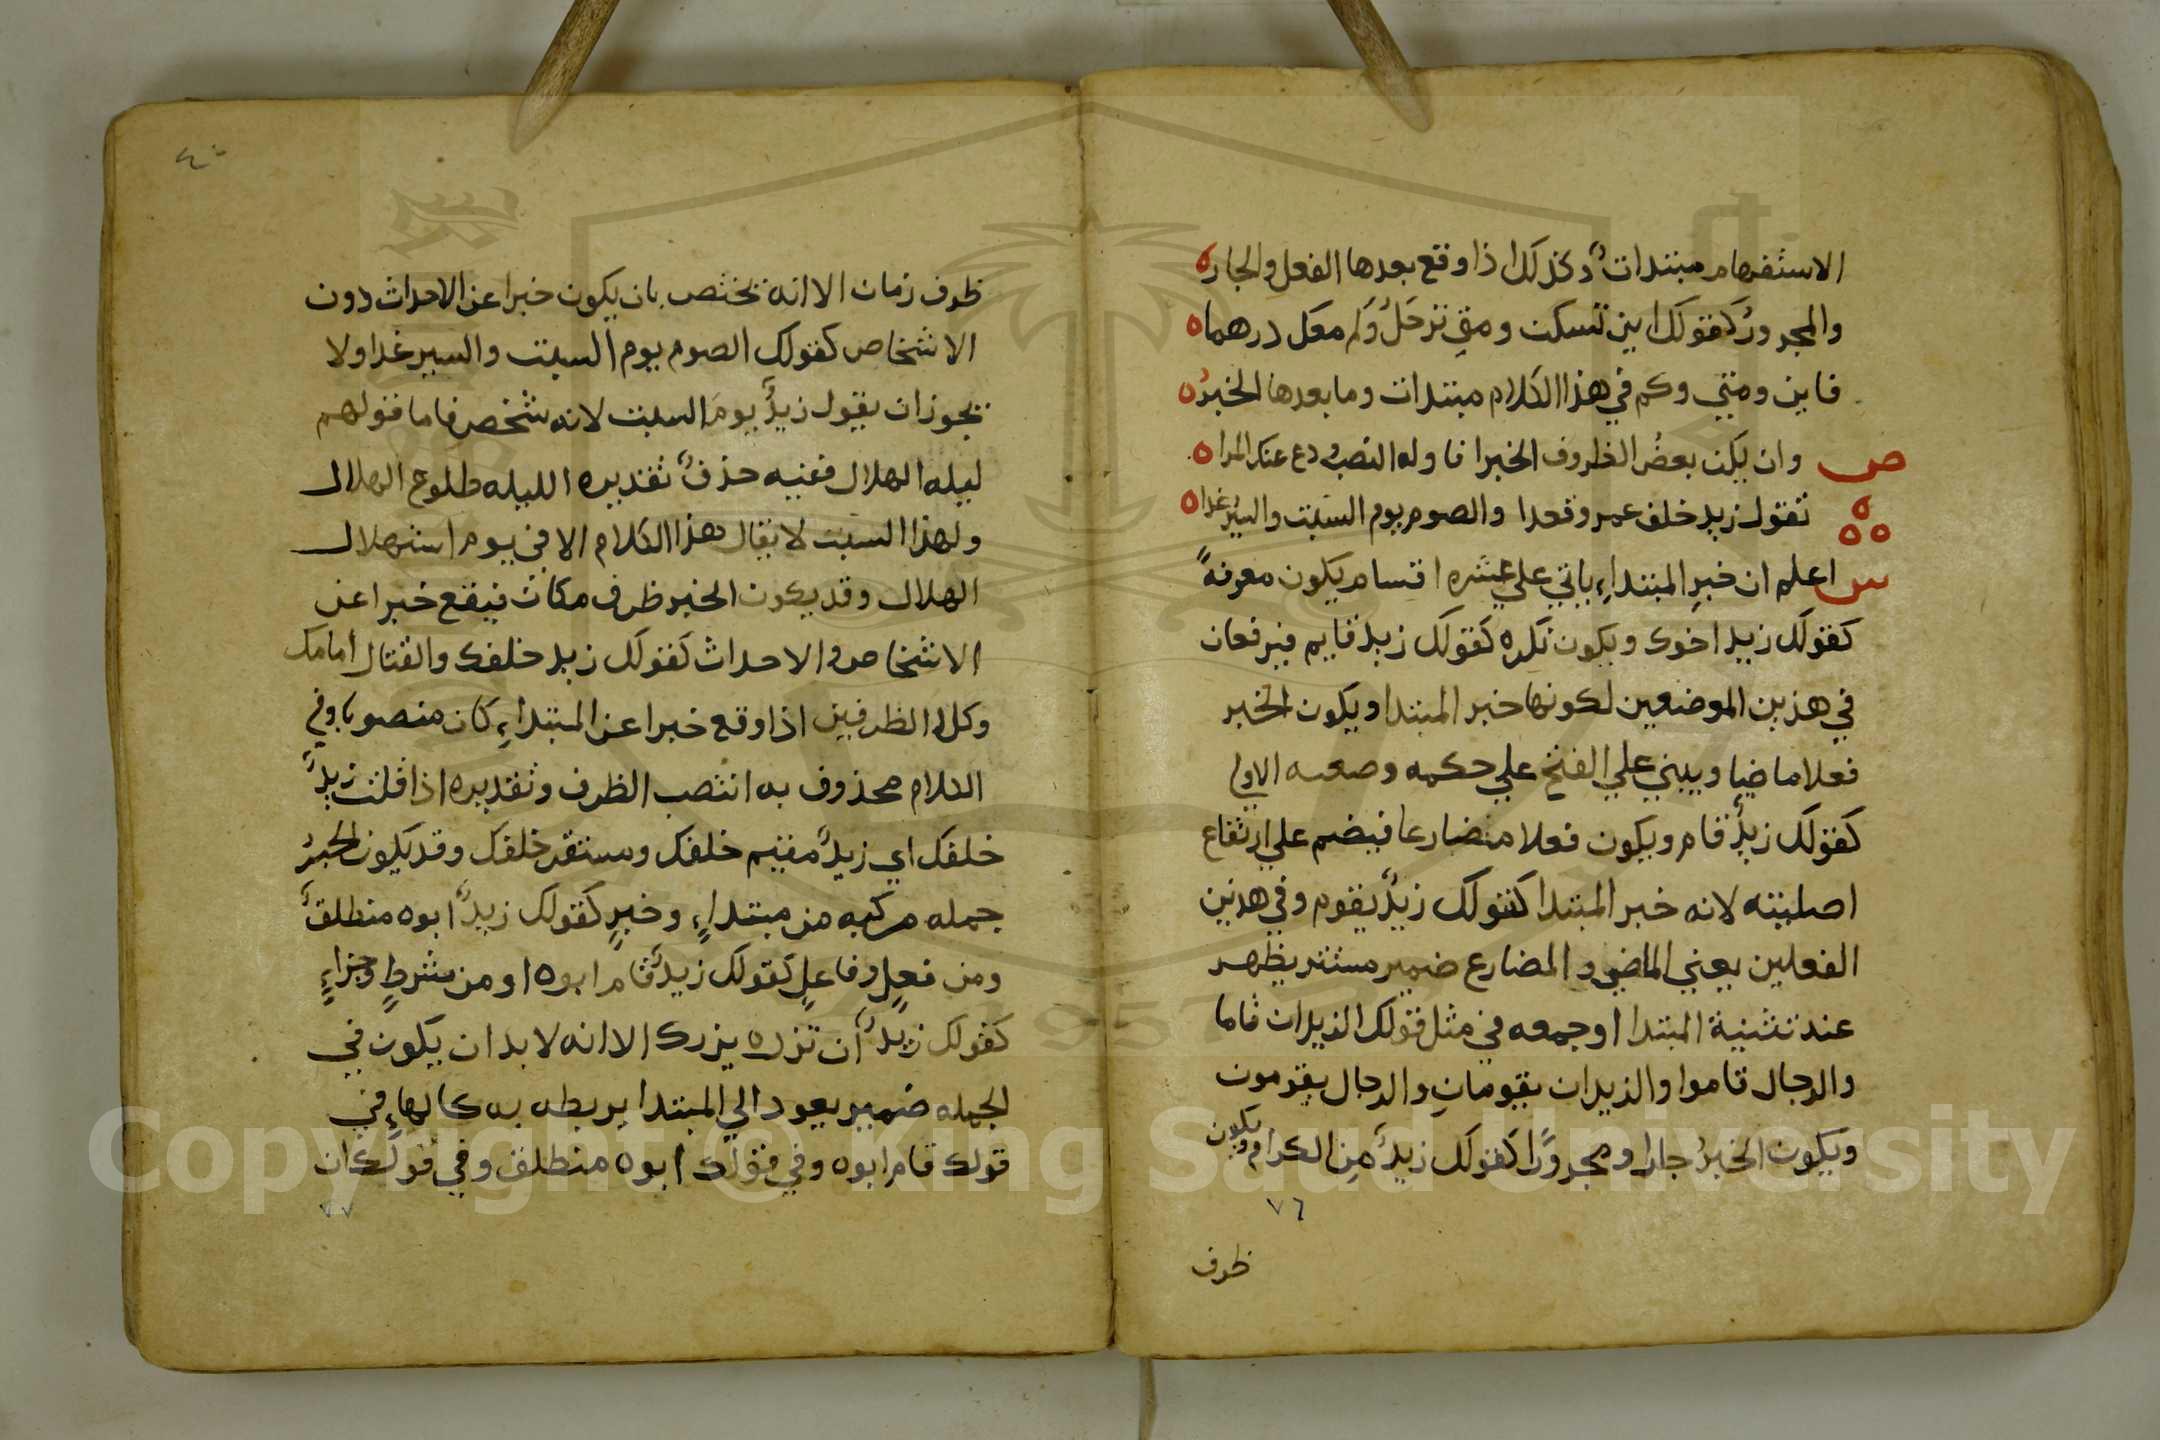 الاستفهام مبتدات وكذلك اذا وقع بعدها الفعل والجار ه
والمجرور كقولك اين تسكن ومتى ترحل وكم معك درهما ه
فاين ومتي وكم في هذا الكلام مبتدات وما بعدها الخبر ه
ص وان يكن بعض الظروف الخبرا فاوله النصب ودع عنك المرا ه
تقول زيد خلف عمرو قعدا والصوم يوم السبت والسير غدا ه
س اعلم ان خبر المبتداء ياتي علي عشره اقسام يكون معرفة
كقولك زيد اخوك ويكون نكره كقولك زيد قايم فيرفعان
في هذين الموضعين لكونها خبر المبتدا ويكون الخبر
فعلا ماضيا ويبني علي الفتح علي حكمه وصعه الاول
كقولك زيد قام ويكون فعلا مضارعا فيضم علي ارتفاع
اصليته لانه خبر المبتدا كقولك زيد يقوم وفي هذين
الفعلين يعني الماضي والمضارع ضمير مستتر يظهر
عند تثنية المبتدا او جمعه في مثل قولك الزيدان قاما
والرجال قاموا والزيدان يقومان والرجال يقومون
ويكون الخبر جارا ومجرورًا كقولك زيد من الكرام ويكون
٧٦
ظرف
٤٠
ظرف زمان الا انه يختص بان يكون خبرا عن الاحداث دون
الاشخاص كقولك الصوم يوم السبت والسير غدا ولا
يجوز ان يقول زيد يوم السبت لانه شخص فاما قولهم
ليله الهلال ففيه حذف تقديره الليله طلوع الهلال
ولهذا السبت لا يقال هذا الكلام الا في يوم استهلال
الهلال وقد يكون الخبر ظرف مكان فيقع خبرا عن
الاشخاص والاحداث كقولك زيد خلفك والقتال امامك
وكلا الظرفين اذا وقع خبرا عن المبتداء كان منصوبا وفي
الكلام محذوف به انتصب الظرف وتقديره اذا قلت زيد
خلفك اي زيد مقيم خلفك ومستقر خلفك وقد يكون الخبر
جمله مركبه من مبتداء وخبر كقولك زيد ابوه منطلق
ومن فعل وفاعل كقولك زيد قام ابوه او من شرط وجزاء
كقولك زيد ان تزره يزرك الا انه لا بد ان يكون في
الجمله ضمير يعود الي المبتدا يربطه به كالهاء في
قولك قام ابوه وفي قولك ابوه منطلق وفي قولك ان
٧٧
Copyright © King Saud University
1957